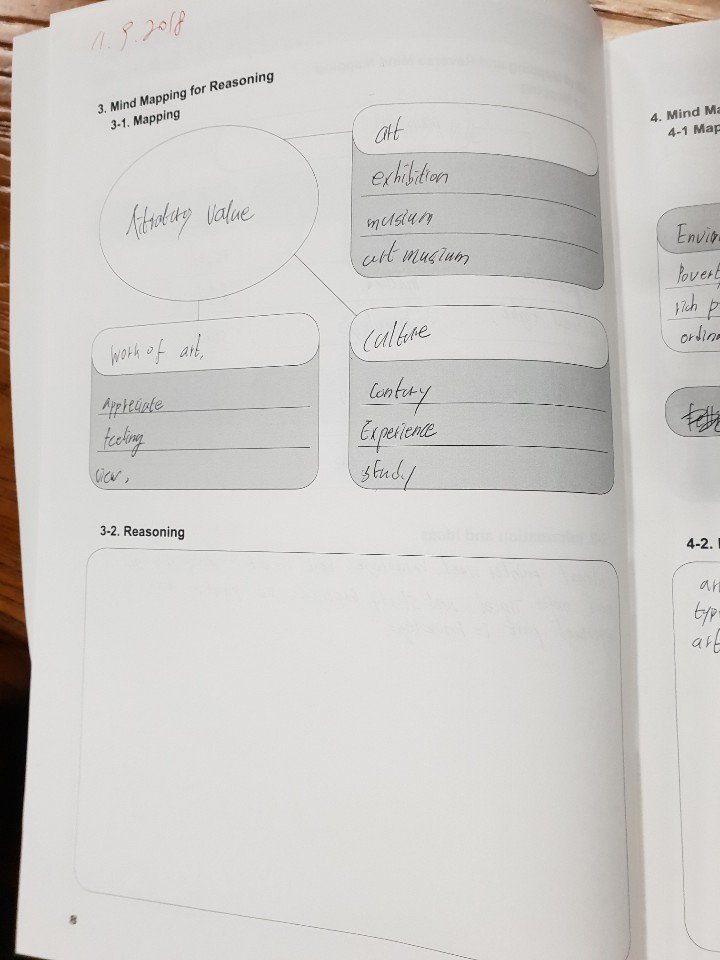 11. 9. 2018
3. Mind Mapping for Reasoning
3-1. Mapping
value
art
exhibition
musium
art musium
work of art,
appreciate
feeling
view,
culture
Contury
Experience
study
3-2. Reasoning
8
4. Mind Ma
4-1 Map
Enviro
Povert
rich p
ordina
4-2.
ar
typ
art